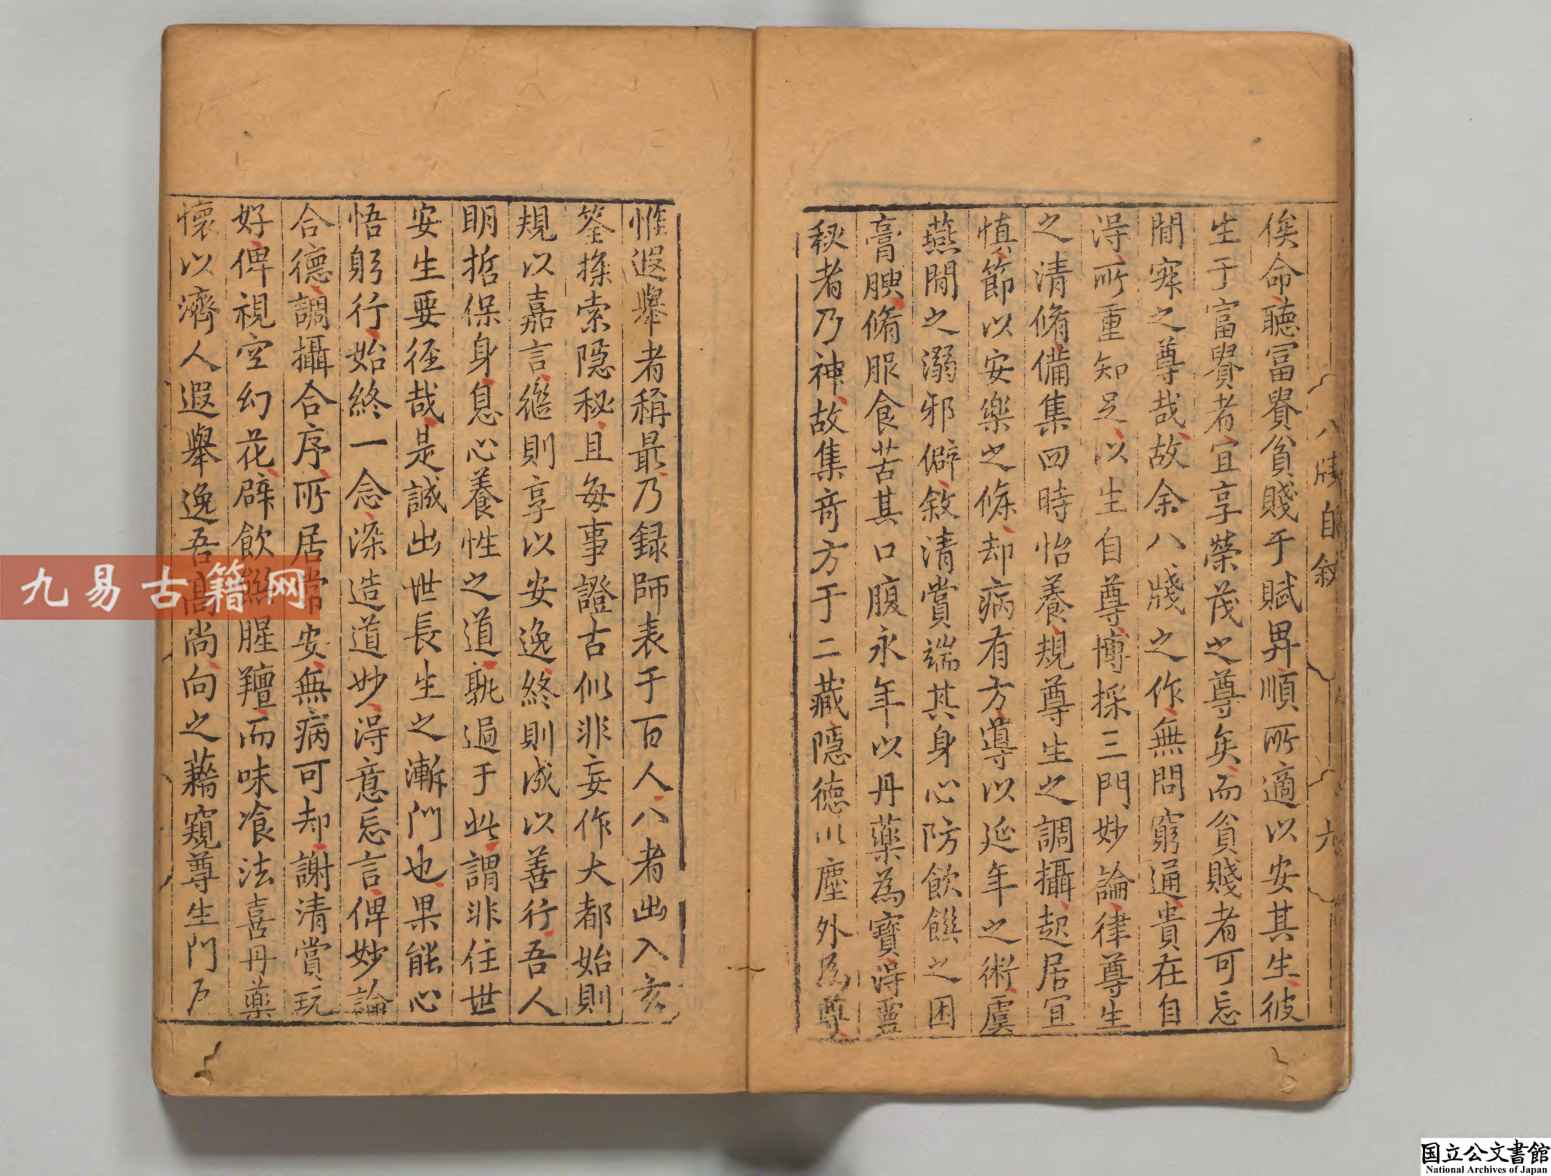 俟命聽富貴貧賤于賦畀順所適以安其生彼
生于富貴者宜享榮茂之尊矣而貧賤者可忘
閒寂之尊哉故余八牋之作無問窮通貴在自
得所重知足以生自尊博採三門妙論律尊生
之清脩備集四時怡養規尊生之調攝起居宜
慎節以安樂之條却病有方導以延年之術虞
燕閒之溺邪僻敘清賞端其身心防飲饌之困
膏腴脩服食苦其口腹永年以丹藥為寶得靈
秘者乃神故集奇方于二藏隱德以塵外為尊
惟遐舉者稱最乃録師表于百人八者出入玄
筌探索隱秘且每事證古似非妄作大都始則
規以嘉言繼則享以安逸終則成以善行吾人
明哲保身息心養性之道孰過于此謂非住世
安生要徑哉是誠出世長生之漸門也果能心
悟躬行始終一念深造道妙得意忘言俾妙論
合德調攝合序所居常安無病可却謝清賞玩
好俾視空幻花辟飲饌腥羶而味飡法喜丹藥
懷以濟人遐舉逸吾高尚向之藉窺尊生門戶
八牋自敘
六
九易古籍网
国立公文書館
National Archives of Japan